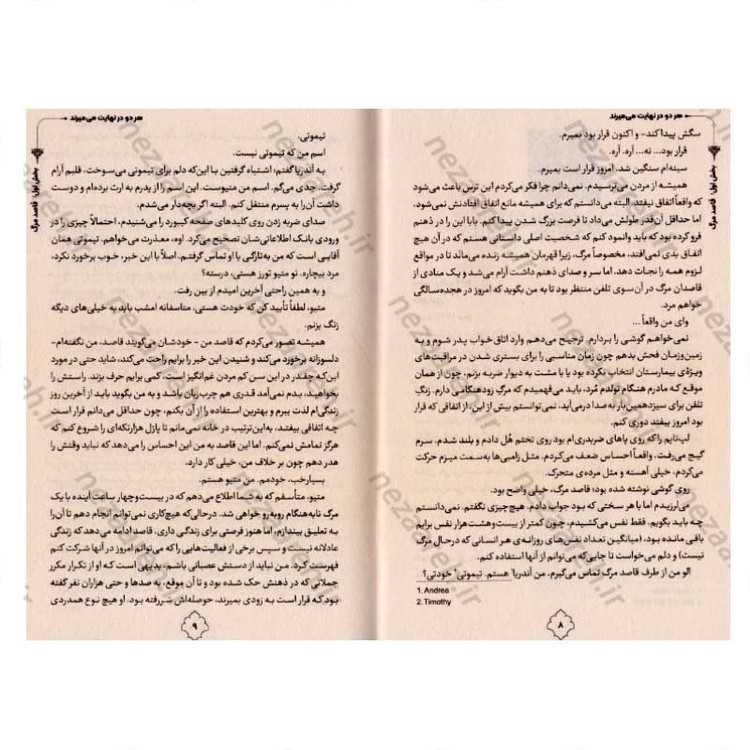 هر دو در نهایت می‌میرند
بخش اول: قاصد مرگ
سگش پیدا کند- و اکنون قرار بود بمیرم.
قرار بود... نه... آره. آره.
سینه‌ام سنگین شد. امروز قرار است بمیرم.
همیشه از مردن می‌ترسیدم. نمی‌دانم چرا فکر می‌کردم این ترس باعث می‌شود
که واقعاً اتفاق نیفتد. البته می‌دانستم که برای همیشه مانع اتفاق افتادنش نمی‌شود،
اما حداقل آن‌قدر طولش می‌داد تا فرصت بزرگ شدن پیدا کنم. بابا این را در ذهنم
فرو کرده بود که باید وانمود کنم که شخصیت اصلی داستانی هستم که در آن هیچ
اتفاق بدی نمی‌افتد، مخصوصاً مرگ، زیرا قهرمان همیشه زنده می‌ماند تا در مواقع
لزوم همه را نجات دهد. اما سر و صدای ذهنم داشت آرام می‌شد و یک منادی از
قاصدان مرگ در آن‌سوی تلفن منتظر بود تا به من بگوید که امروز در هجده‌سالگی
خواهم مرد.
وای من واقعاً ...
نمی‌خواهم گوشی را بردارم. ترجیح می‌دهم وارد اتاق خواب پدر شوم و به
زمین‌وزمان فحش بدهم چون زمان مناسبی را برای بستری شدن در مراقبت‌های
ویژه‌ی بیمارستان انتخاب نکرده بود یا با مشت به دیوار ضربه بزنم، چون از همان
موقع که مادرم هنگام تولدم مُرد، باید می‌فهمیدم که مرگِ زودهنگامی دارم. زنگِ
تلفن برای سیزدهمین‌بار به‌صدا درمی‌آید. نمی‌توانستم بیش از این، از اتفاقی که قرار
بود امروز بیفتد دوری کنم.
لپ‌تاپم را که روی پاهای ضربدری‌ام بود روی تختم هُل دادم و بلند شدم. سرم
گیج می‌رفت. واقعاً احساس ضعف می‌کردم. مثل زامبی‌ها به‌سمت میزم حرکت
می‌کردم، خیلی آهسته و مثل مرده‌ی متحرک.
روی گوشی نوشته شده بود: قاصد مرگ. خیلی واضح بود.
می‌لرزیدم اما با هر سختی که بود جواب دادم. هیچ چیزی نگفتم. نمی‌دانستم
چه باید بگویم. فقط نفس می‌کشیدم، چون کمتر از بیست‌وهشت‌هزار نفس برایم
باقی مانده بود، (میانگین تعداد نفس‌های روزانه‌ی هر انسانی که درحال مرگ
نیست) و دلم می‌خواست تا جایی‌که می‌توانم از آنها استفاده کنم.
الو من از طرف قاصد مرگ تماس می‌گیرم. من آندریا¹ هستم. تیموتی² خودتی؟
1. Andrea
2. Timothy
۸
هر دو در نهایت می‌میرند
بخش اول: قاصد مرگ
تیموتی.
اسم من که تیموتی نیست.
به آندریا گفتم، اشتباه گرفتین با این‌که دلم برای تیموتی می‌سوخت. قلبم آرام
گرفت. جدی می‌گم. اسم من متیوست. این اسم را از پدرم به ارث برده‌ام و دوست
داشتم آن را به پسرم منتقل کنم. البته اگر بچه‌دار می‌شدم.
صدای ضربه زدن روی کلیدهای صفحه کیبورد را می‌شنیدم، احتمالاً چیزی را در
ورودی بانک اطلاعاتی‌شان تصحیح می‌کرد. اوه، معذرت می‌خواهم. تیموتی همان
آقایی است که من به‌تازگی با او تماس گرفتم. اصلاً با این خبر، خوب برخورد نکرد،
مرد بیچاره. تو متیو تورز هستی، درسته؟
و به همین راحتی آخرین امیدم از بین رفت.
متیو، لطفاً تأیید کن که خودت هستی. متاسفانه امشب باید به خیلی‌های دیگه
زنگ بزنم.
همیشه تصور می‌کردم که قاصد من - خودشان می‌گویند قاصد، من نگفته‌ام-
دلسوزانه برخورد می‌کند و شنیدن این خبر را برایم راحت می‌کند، شاید حتی در مورد
این‌که چقدر در این سن کم مردن غم‌انگیز است، کمی برایم حرف بزند. راستش را
بخواهید، بدم نمی‌آمد قدری هم چرب‌زبان باشد و به من بگوید باید از آخرین روز
زندگی‌ام لذت ببرم و بهترین استفاده را از آن بکنم، چون حداقل می‌دانم قرار است
چه اتفاقی بیفتد، به‌این‌ترتیب در خانه نمی‌مانم تا پازل هزارتکه‌ای را شروع کنم که
هرگز تمامش نمی‌کنم. اما این قاصد به من این احساس را می‌دهد که نباید وقتش را
هدر دهم چون بر خلاف من، خیلی کار دارد.
بسیارخب، خودمم. من متیو هستم.
متیو، متأسفم که به شما اطلاع می‌دهم که در بیست‌وچهار ساعت آینده با یک
مرگ نابه‌هنگام روبه‌رو خواهی شد. درحالی‌که هیچ‌کاری نمی‌توانم انجام دهم تا آن‌را
به تعلیق بیندازم، اما هنوز فرصتی برای زندگی داری. قاصد ادامه می‌دهد که زندگی
عادلانه نیست و سپس برخی از فعالیت‌هایی را که می‌توانم امروز در آنها شرکت کنم
فهرست کرد. من نباید از دستش عصبانی باشم، بدیهی است که او از تکرار مکرر
جملاتی که در ذهنش حک شده بود و تا آن موقع، به صدها و حتی هزاران نفر گفته
بود که قرار است به زودی بمیرند، حوصله‌اش سررفته بود. او هیچ نوع همدردی
۹
nezaaeh.ir